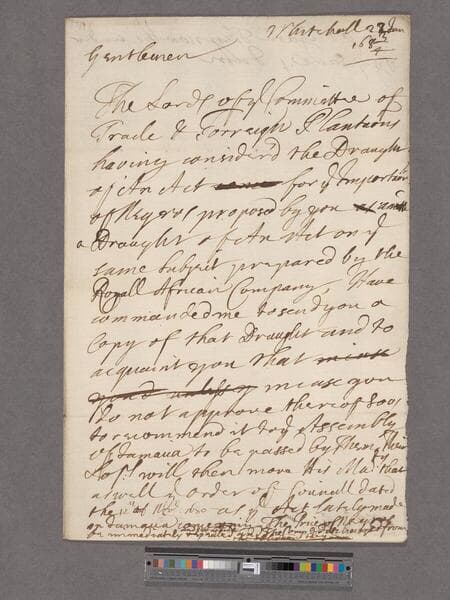 Whitehall 23d Jan
168 3/4
Gentlemen
The Lords of ye Committee of
Trade & Forreigh Plantacons
having considerd the Draught
of An Act for ye Importacon
of Negros proposed by you
a Draught of An Act on ye
same Subject prepared by the
Royall African Company, Have
commanded me to send you a
Copy of that Draught and to
acquaint you that
in case you
Do not approve thereof soe
to recommend it to ye Assembly
of Jamaica to be passed by Them, Their
Lops will then move His Maty that
aswell ye order of Council dated
the 12th of Novr 1680 as ye Act lately made
in Jamaica The Price of Negros
be immediately repealed